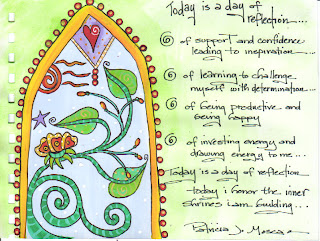 Today is a day of
reflection....
of support and confidence
leading to inspiration....
of learning to challenge
myself with determination....
of being productive and
being happy
of investing energy and
drawing energy to me....
Today is a day of reflection...
today i honor the inner
shrines i am building...
Patricia J. Mosca